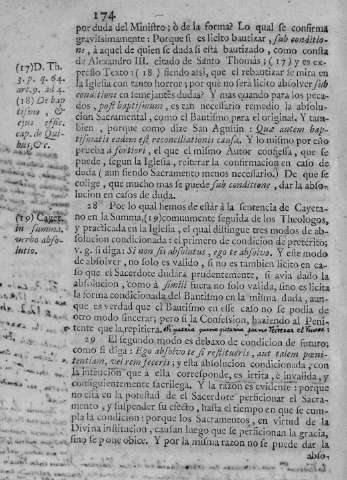 174
por duda del Ministro; ò de la forma? Lo qual se confirma
gravissimamente: Porque si es licito bautizar, sub conditio-
ne, à aquel de quien se duda si està bautizado, como consta
de Alexandro III. citado de Santo Thomàs; (17) y es ex-
presso Texto: (18) siendo assi, que el rebautizar se mira en
la Iglesia con tanto horror; por què no serà licito absolver sub
conditione en semejantes dudas? Y mas quando para los peca-
dos, post baptismum, es tan necesario remedio la absolu-
cion Sacramental, como el Bautismo para el original. Y tam-
bien, porque como dize San Agustin: Quæ autem bap-
tismatis eadem est reconciliationis causa. Y lo mismo por esso
prueba a fortiori, el que el mismo Autor confiessa, que se
puede, segun la Iglesia, reiterar la confirmacion en caso de
duda (aun siendo Sacramento menos necessario.) De que se
colige, que mucho mas se puede sub conditione, dar la abso-
lucion en casos de duda.
(17) D. Th.
3. p. q. 64.
art. 9. ad 4.
(18) De bap
tismo, &
ejus effic.
cap. de Qui-
bus, &c.
28 Por lo qual hemos de estàr à la sentencia de Cayeta-
no en la Summa, (19) comunmente seguida de los Theologos,
y practicada en la Iglesia, el qual distingue tres modos de ab-
solucion condicionada: el primero de condicion de preterito;
v. g. si diga: Si non sis absolutus, ego te absolvo. Y este modo
de absolver, no solo es valido, si no es tambien licito en ca-
so que el Sacerdote dudàra prudentemente, si avia dado la
absolucion, como à simili fuera no solo valida, sino es licita
la forma condicionada del Bautismo en la misma duda, aun-
que es verdad que el Bautismo en este caso no se podia de
otro modo iterar; pero si la Confession, haziendo al Peni-
tente que la repitiera.
(19) Cayet.
in summa.
verbo abso-
lutio.
29 El segundo modo es debaxo de condicion de futuro;
como si diga: Ego absolvo te si restitueris, aut talem pœni-
tentiam, vel rem feceris; y esta absolucion condicionada, con
la intencion que à ella corresponde, es irrita, è invalida, y
consiguientemente sacrilega. Y la razon es evidente: porque
no està en la potestad de el Sacerdote perficionar el Sacra-
mento, y suspender su efecto, hasta el tiempo en que se cum-
pla la condicion: porque los Sacramentos, en virtud de la
Divina institucion, causan luego que se perficionan la gracia,
sino se pone obice. Y por la misma razon no se puede dar la
abso-